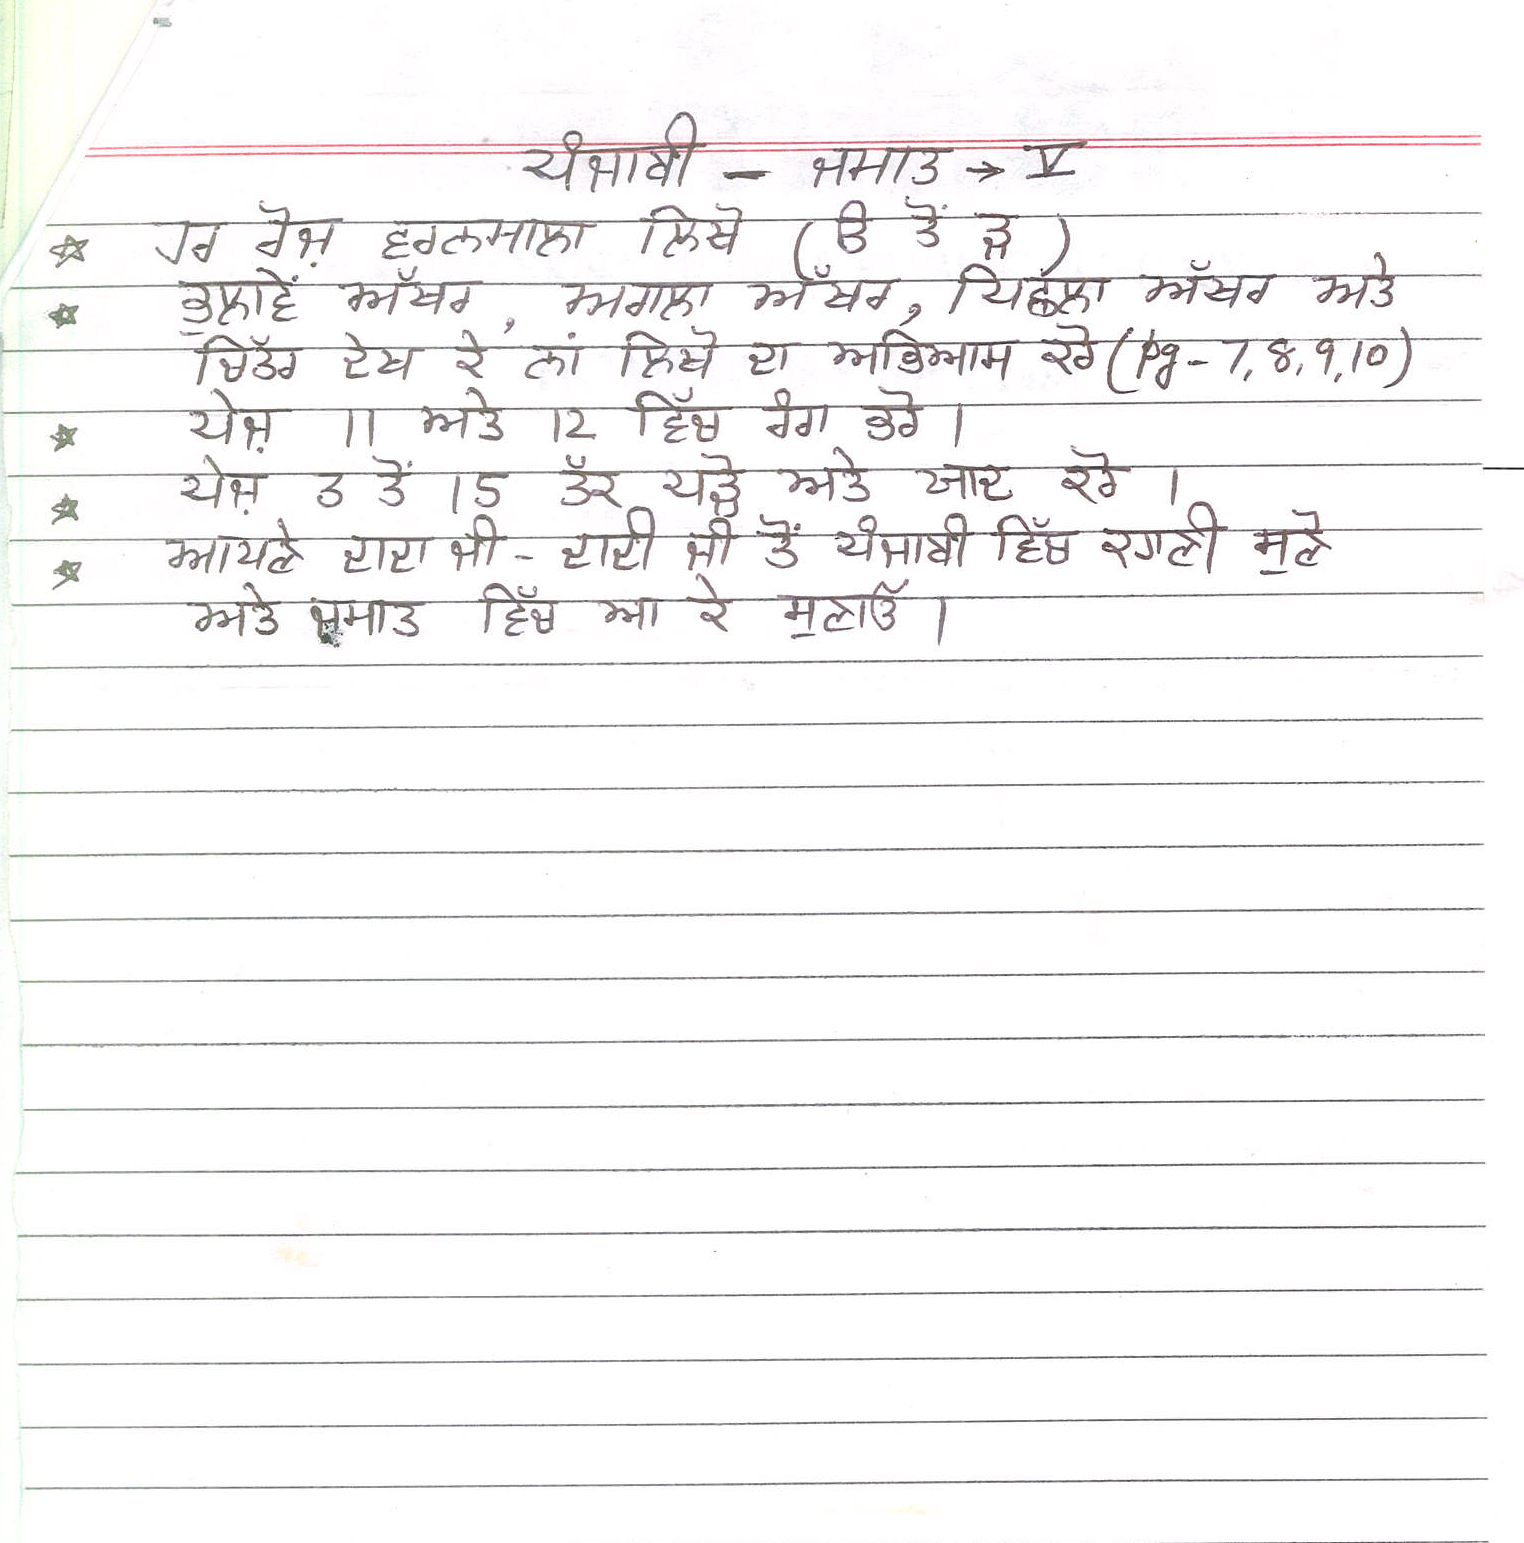 ਪੰਜਾਬੀ - ਜਮਾਤ → V
☆ ਹਰ ਰੋਜ਼ ਵਰਣਮਾਲਾ ਲਿਖੋ (ੳ ਤੋਂ ੜ)
☆ ਭੁਲਾਵੇਂ ਅੱਖਰ, ਅਗਲਾ ਅੱਖਰ, ਪਿਛਲਾ ਅੱਖਰ ਅਤੇ
ਚਿੱਤਰ ਦੇਖ ਕੇ ਨਾਂ ਲਿਖੋ ਦਾ ਅਭਿਆਸ ਕਰੋ (pg - 7, 8, 9, 10)
☆ ਪੇਜ਼ 11 ਅਤੇ 12 ਵਿੱਚ ਰੰਗ ਭਰੋ।
☆ ਪੇਜ਼ 3 ਤੋਂ 15 ਤੱਕ ਪੜ੍ਹੋ ਅਤੇ ਯਾਦ ਕਰੋ।
☆ ਆਪਣੇ ਦਾਦਾ ਜੀ - ਦਾਦੀ ਜੀ ਤੋਂ ਪੰਜਾਬੀ ਵਿੱਚ ਕਹਾਣੀ ਸੁਣੋ
ਅਤੇ ਜਮਾਤ ਵਿੱਚ ਆ ਕੇ ਸੁਣਾਓ।